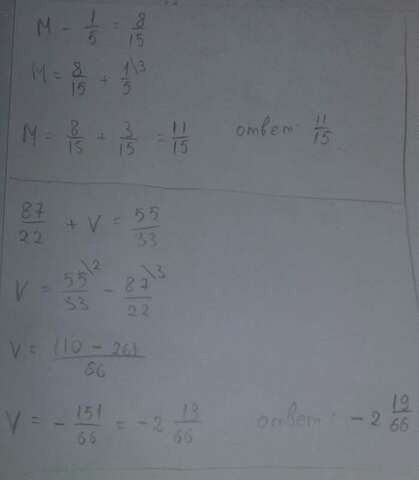 M - 1/5 = 8/15
M = 8/15 + 1\3/5
M = 8/15 + 3/15 = 11/15 ответ: 11/15.
87/22 + V = 55/33
V = 55\2/33 - 87\3/22
V = 110 - 261/66
V = - 151/66 = -2 19/66 ответ: -2 19/66